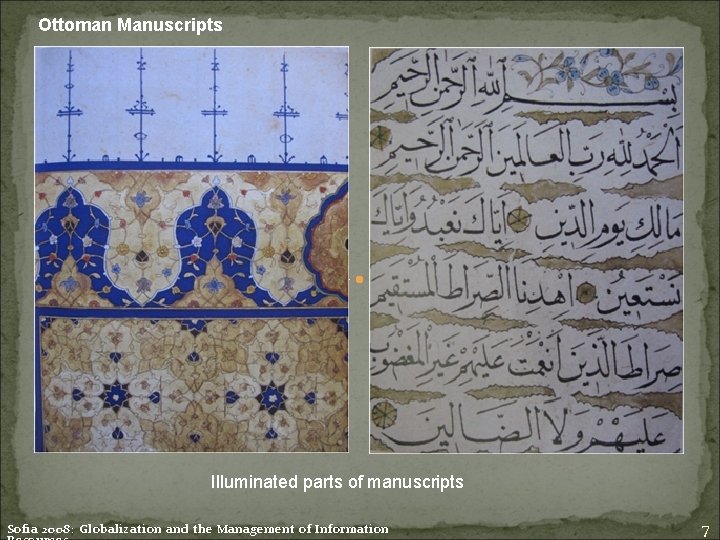 Ottoman Manuscripts
بِسْمِ اللهِ الرَّحْمنِ الرَّحِيمِ
اَلْحَمْدُ لِلّهِ رَبِّ الْعَالَمِينَ اَلرَّحْمنِ الرَّحِيمِ
مَالِكِ يَوْمِ الدِّينِ اِيَّاكَ نَعْبُدُ وَاِيَّاكَ
نَسْتَعِينُ اِهْدِنَا الصِّرَاطَ الْمُسْتَقِيمَ
صِرَاطَ الَّذِينَ اَنْعَمْتَ عَلَيْهِمْ غَيْرِ الْمَغْضُوبِ
عَلَيْهِمْ وَلَا الضَّالِّينَ
Illuminated parts of manuscripts
Sofia 2008: Globalization and the Management of Information
7